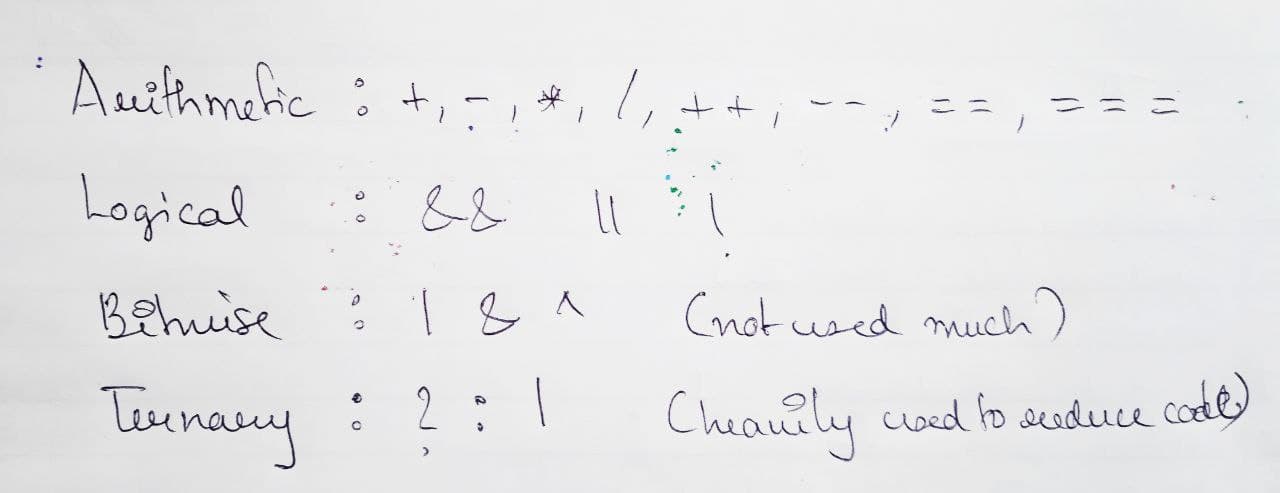 : Arithmetic : +, -, *, /, ++, --, ==, ===
Logical : && || !
Bitwise : | & ^ (not used much)
Ternary : ? : | (heavily used to reduce code)